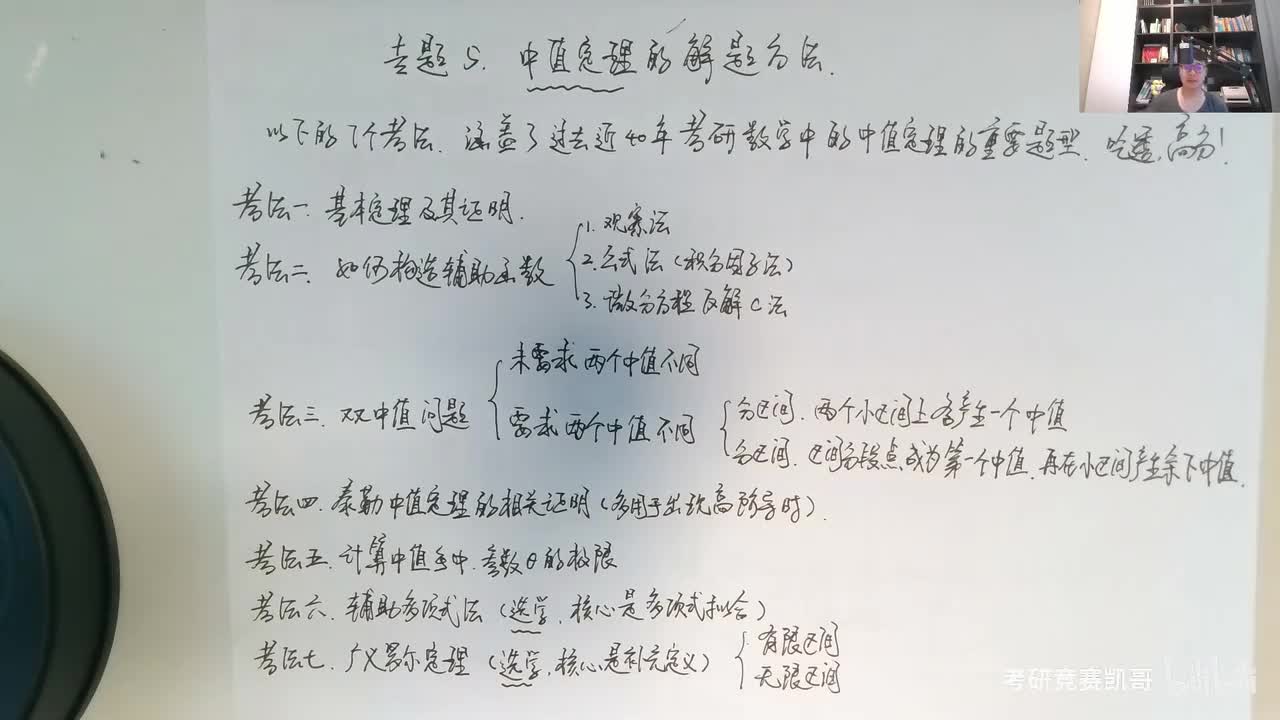 专题5. 中值定理的解题方法.
以下的7个考法. 涵盖了过去近40年考研数学中的中值定理的重要题型. 吃透,高分!
考法一. 基本定理及其证明.
考法二. 如何构造辅助函数
1. 观察法
2. 公式法(积分因子法)
3. 微分方程反解C法
考法三. 双中值问题
未要求两个中值不同
要求两个中值不同
分区间. 两个小区间上各产生一个中值
分区间. 区间分段点成为第一个中值. 再在小区间产生余下中值.
考法四. 泰勒中值定理的相关证明(多用于出现高阶导时).
考法五. 计算中值当中. 参数θ的极限
考法六. 辅助多项式法(选学. 核心是多项式拟合)
考法七. 广义罗尔定理(选学. 核心是补充定义)
有限区间
无限区间
考研竞赛凯哥 bilibili